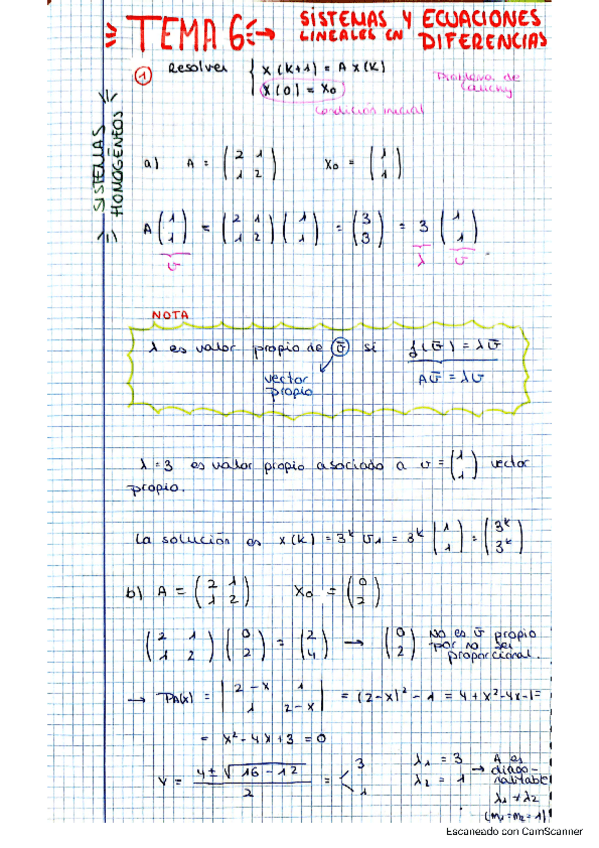 TEMA 6 → SISTEMAS Y ECUACIONES
LINEALES EN DIFERENCIAS
① Resolver { x(k+1) = A x(k)
x(0) = x₀
Problema de Cauchy
Condición inicial
SISTEMAS HOMOGÉNEOS
a) A = (2 1; 1 2) x₀ = (1; 1)
A (1; 1) = (2 1; 1 2) (1; 1) = (3; 3) = 3 (1; 1)
v̄ λ v̄
NOTA
λ es valor propio de v̄ si f(v̄) = λv̄
vector propio Av̄ = λv̄
λ=3 es valor propio asociado a v = (1; 1) vector
propio.
La solución es x(k) = 3ᵏ v̄₁ = 3ᵏ (1; 1) = (3ᵏ; 3ᵏ)
b) A = (2 1; 1 2) x₀ = (0; 2)
(2 1; 1 2) (0; 2) = (2; 4) → (0; 2) No es v̄ propio
por no ser
proporcional.
→ PA(x) = |2-x 1; 1 2-x| = (2-x)² - 1 = 4 + x² - 4x - 1 =
= x² - 4x + 3 = 0
x = (4 ± √(16 - 12)) / 2 = < 3; 1
λ₁ = 3
λ₂ = 1
→ A es
diago-
nalizable
λ₁ ≠ λ₂
(m₁=m₂=1)
Escaneado con CamScanner